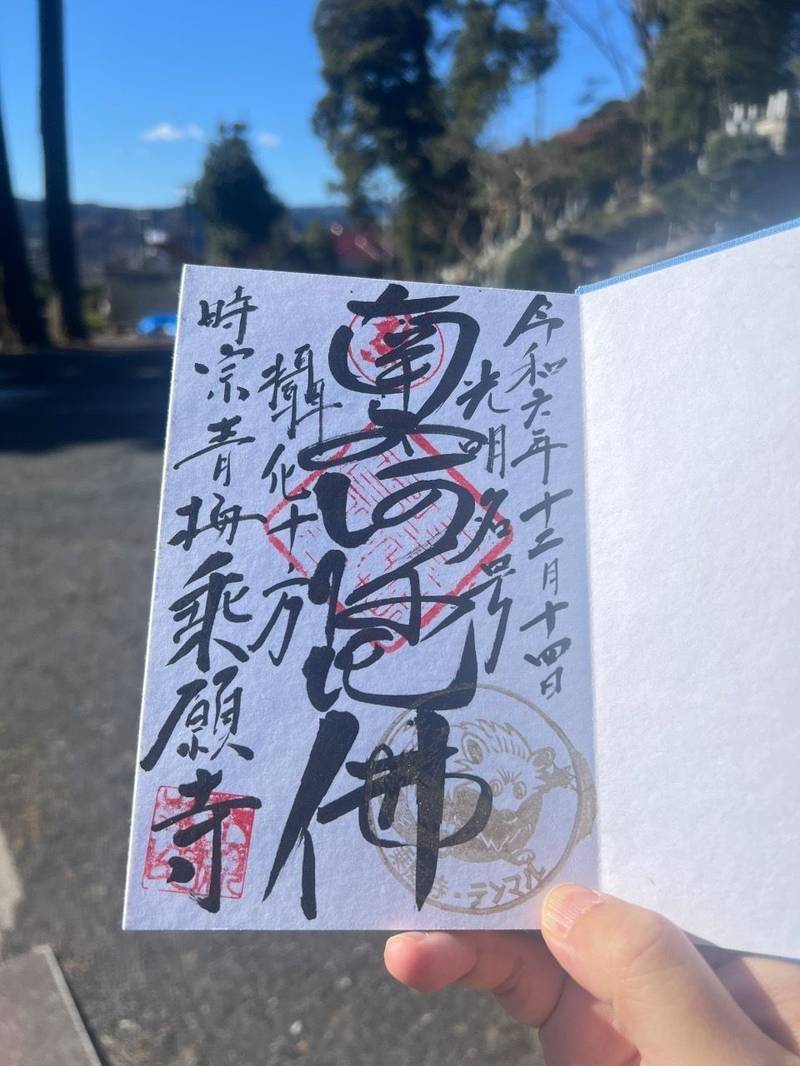 令和六年十二月十四日
光明名号
南無阿弥陀佛
攝化十方
時宗青梅乘願寺
テンマル